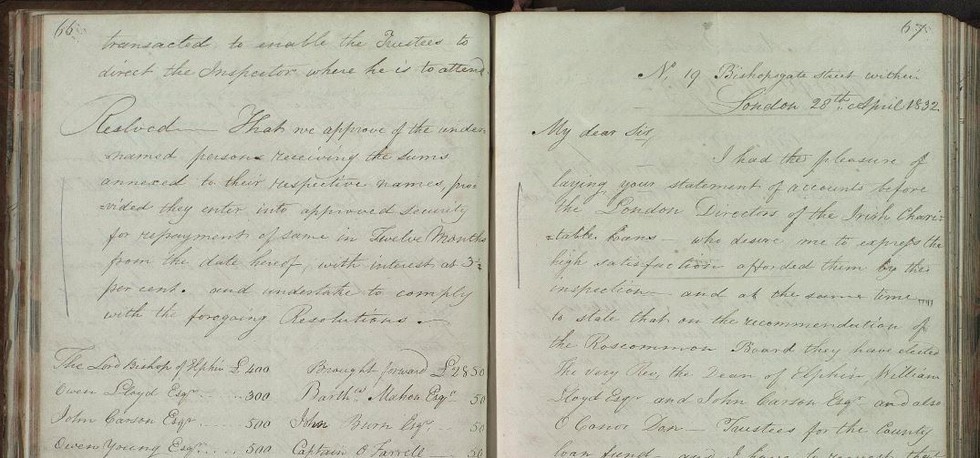 66
transacted to enable the Trustees to
direct the Inspector where he is to attend
Resolved That we approve of the under
named persons receiving the sums
annexed to their respective names, pro
=vided they enter into approved security
for repayment of same in Twelve Months
from the date hereof, with interest at 3
per cent. and undertake to comply
with the foregoing Resolutions.
The Lord Bishop of Elphin £ 400
Owen Lloyd Esqr. 300
John Carson Esqr. 500
Owen Young Esqr. 500
Brought forward £2850
Barthw. Mahon Esqr. 50
John Burn Esqr. 50
Captain O'Farrell 50
67
No. 19 Bishopsgate street within
London 28th April 1832.
My dear Sir,
I had the pleasure of
laying your statement of accounts before
the London Directors of the Irish Chari=
=table Loans who desire me to express the
high satisfaction afforded them by the
inspection and at the same time
to state that on the recommendation of
the Roscommon Board they have elected
The Very Rev. the Dean of Elphin, William
Lloyd Esqr and John Carson Esqr and also
O'Conor Don Trustees for the County
loan fund and I have to request that